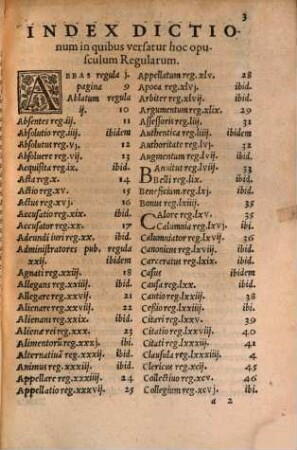 3
INDEX DICTIO
num in quibus versatur hoc opu-
sculum Regularum.
ABBAS regula j.
pagina 9
Ablatum regula
ij. 10
Absenter reg.iij. 11
Absolutio reg.iij. ibidem
Absolutus reg.vj. 12
Absoluere reg.vij. ibid.
Acquisita reg.ix. ibid.
Acta reg.x. 14
Actio reg.xv. 15
Actus reg.xvj. 16
Accusatio reg.xix. ibid.
Accusator reg.xx. 17
Adeundi iuri reg.xx. ibid.
Administratores pub. reg.
xxij. ibid.
Agnati reg.xxij. 18
Allegans reg.xxiij. ibid.
Allegare reg.xxvij. 21
Alienatio reg.xxvij. 22
Alienans reg.xxix. ibid.
Aliena rei reg.xxx. 23
Alimentorũ reg.xxxj. ibi.
Alternatiuã reg.xxxij. ibi.
Animus reg.xxxiij. ibid.
Appellare reg.xxxiiij. 24
Appellatio reg.xxxvij. 25
Appellatum reg.xlv. 28
Apoca reg.xlvj. ibid.
Arbiter reg.xlvij. ibid.
Argumentum reg.xlix. 29
Assessoris reg.liij. 31
Authentica reg.liiij. ibi.
Authoritate reg.lvj. 32
Augmentum reg.lvij. ibid
Banvitut reg.lviij. 33
Belli reg.lix. ibid.
Beneficium reg.lxj. ibid.
Bonus reg.lxiij. 35
Calore reg.lxv. 35
Calumnia reg.lxvj. ibi.
Calumniator reg.lxvij. 36
Canonicus reg.lxviij. ibi.
Carceratus reg.lxix. ibid.
Casus ibidem
Causa reg.lxx. ibid.
Cautio reg.lxxij. 38
Cessio reg.lxxiij. ibid.
Citari reg.lxxv. 39
Citatio reg.lxxviij. 40
Citati reg.lxxxij. 41
Clausula reg.lxxxiij. 4
Clericus reg.xcij. 45
Collectiuo reg.xcv. 46
Collegium reg.xcvj. ibi.
a 2